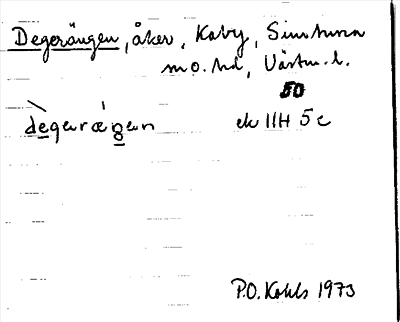 Degerängen, åker, Kaby, Simtuna
sn o. hd, Västm. l.
50
degeræŋen
ek 11H 5c
P.O. Kohls 1973